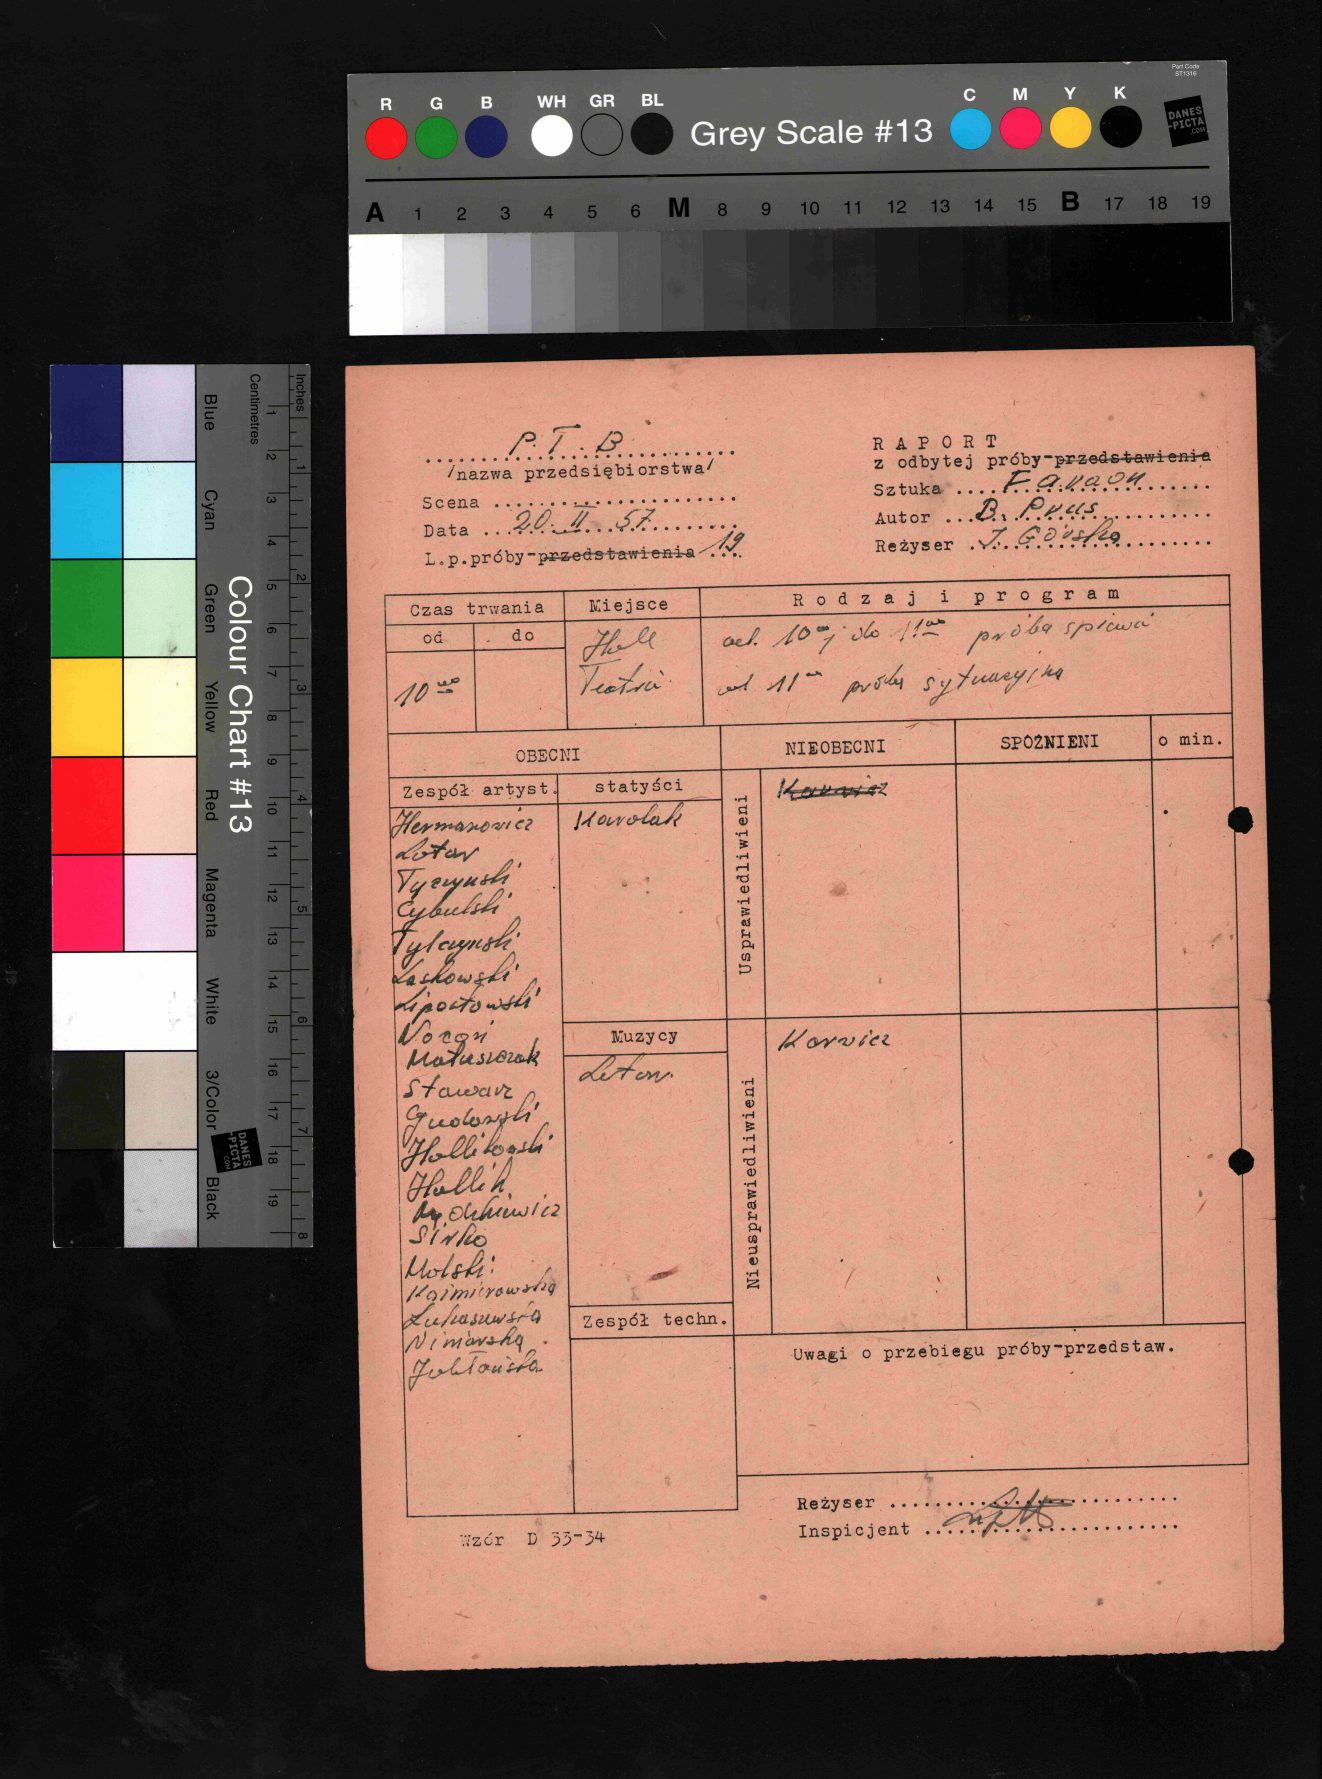 Part Code
ST1316
R G B WH GR BL Grey Scale #13 C M Y K
DANES
-PICTA
.COM
A 1 2 3 4 5 6 M 8 9 10 11 12 13 14 15 B 17 18 19
Colour Chart #13
Blue Cyan Green Yellow Red Magenta White 3/Color Black
Centimetres 1 2 3 4 5 6 7 8 9 10 11 12 13 14 15 16 17 18 19
Inches 1 2 3 4 5 6 7 8
DANES
-PICTA
.COM
P. T. B
/nazwa przedsiębiorstwa/
Scena
Data 20. II 57.
L.p.próby-przedstawienia 19
R A P O R T
z odbytej próby-przedstawienia
Sztuka Faraon
Autor B. Prus
Reżyser J. Górska
Czas trwania
od do
10⁰⁰
Miejsce
Hall
Teatru
R o d z a j i p r o g r a m
od 10⁰⁰ do 11⁰⁰ próba śpiewu
od 11⁰⁰ próba sytuacyjna
OBECNI
Zespół artyst.
Hermanowicz
Lotar
Tyczyński
Cybulski
Tylczyński
Laskowski
Nocoń
Matusiczak
Stawarz
Hallik
Sirko
Molski
Kaźmierowska
Niniowska
Jabłońska
statyści
Karolak
Muzycy
Zespół techn.
NIEOBECNI
Usprawiedliwieni
Karwicz
Nieusprawiedliwieni
Karwicz
SPÓŹNIENI
o min.
Uwagi o przebiegu próby-przedstaw.
Reżyser
Inspicjent
Wzór D 33-34